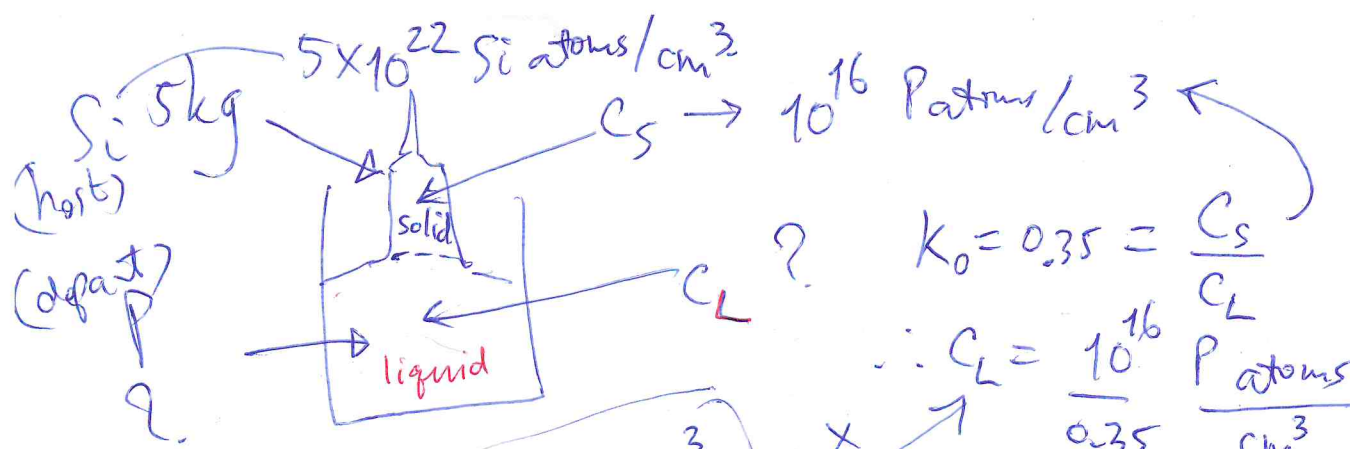 5×10²² Si atoms/cm³
Si 5kg
(host)
C_S → 10¹⁶ P atoms/cm³
solid
(dopant)
P
?
C_L ?
liquid
K₀ = 0.35 = C_S / C_L
∴ C_L = 10¹⁶ / 0.35 P atoms / cm³
3
×